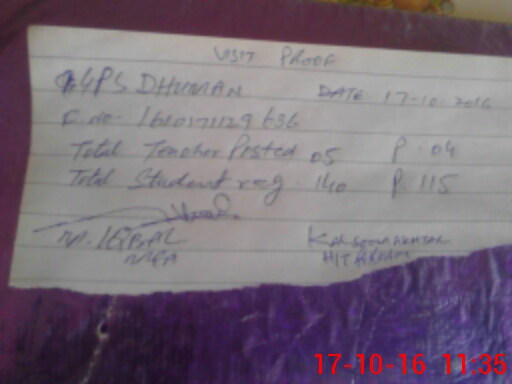 VISIT PROOF
G4PS DHUMAN DATE 17-10-2016
F. no- 1610171129636
Total Teacher Posted 05 P. 04
Total Student reg. 140 P. 115
M. IQBAL
MEA KALSOOM AKHTAR
17-10-16 11:35